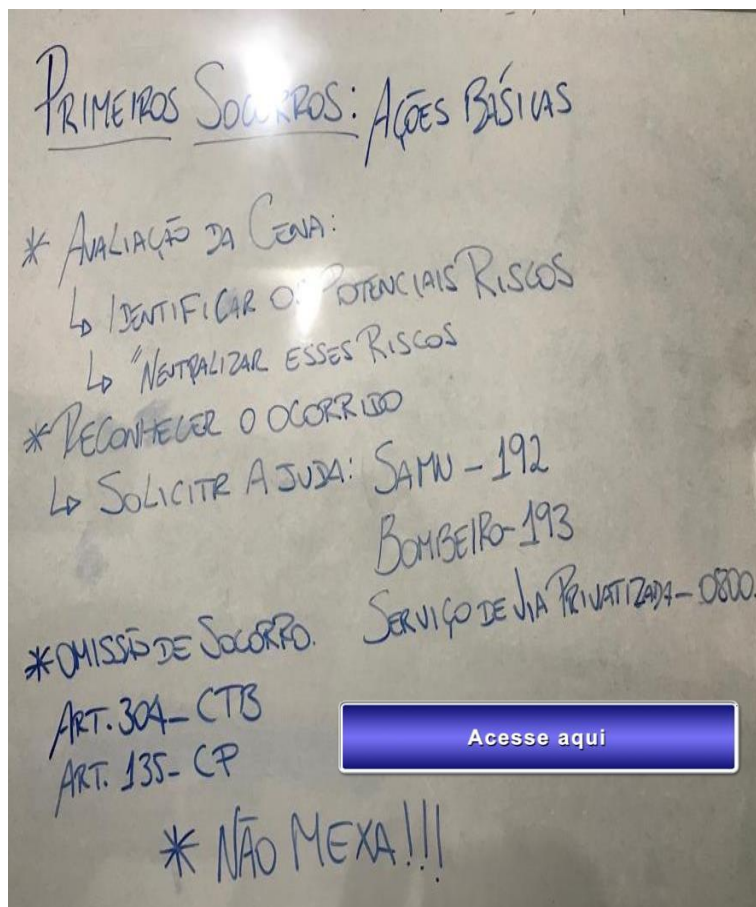 PRIMEIROS SOCORROS: AÇÕES BÁSICAS
* AVALIAÇÃO DA CENA:
↳ IDENTIFICAR OS POTENCIAIS RISCOS
↳ "NEUTRALIZAR ESSES RISCOS
* RECONHECER O OCORRIDO
↳ SOLICITR AJUDA: SAMU - 192
BOMBEIRO - 193
SERVIÇO DE VIA PRIVATIZADA - 0800.
* OMISSÃO DE SOCORRO.
ART. 304 - CTB
ART. 135 - CP
Acesse aqui
* NÃO MEXA!!!